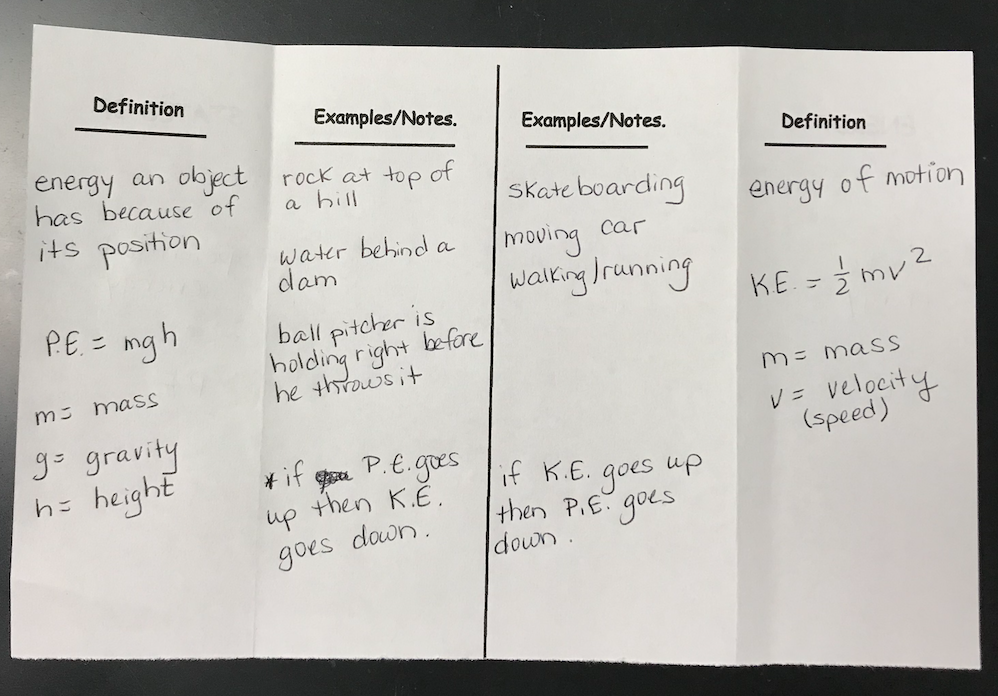 Definition
energy an object
has because of
its position
P.E. = mgh
m= mass
g= gravity
h= height
Examples/Notes.
rock at top of
a hill
water behind a
dam
ball pitcher is
holding right before
he throws it
*if P.E. goes
up then K.E.
goes down.
Examples/Notes.
skateboarding
moving car
walking/running
if K.E. goes up
then P.E. goes
down.
Definition
energy of motion
K.E. = 1/2 mv²
m= mass
v= velocity
(speed)